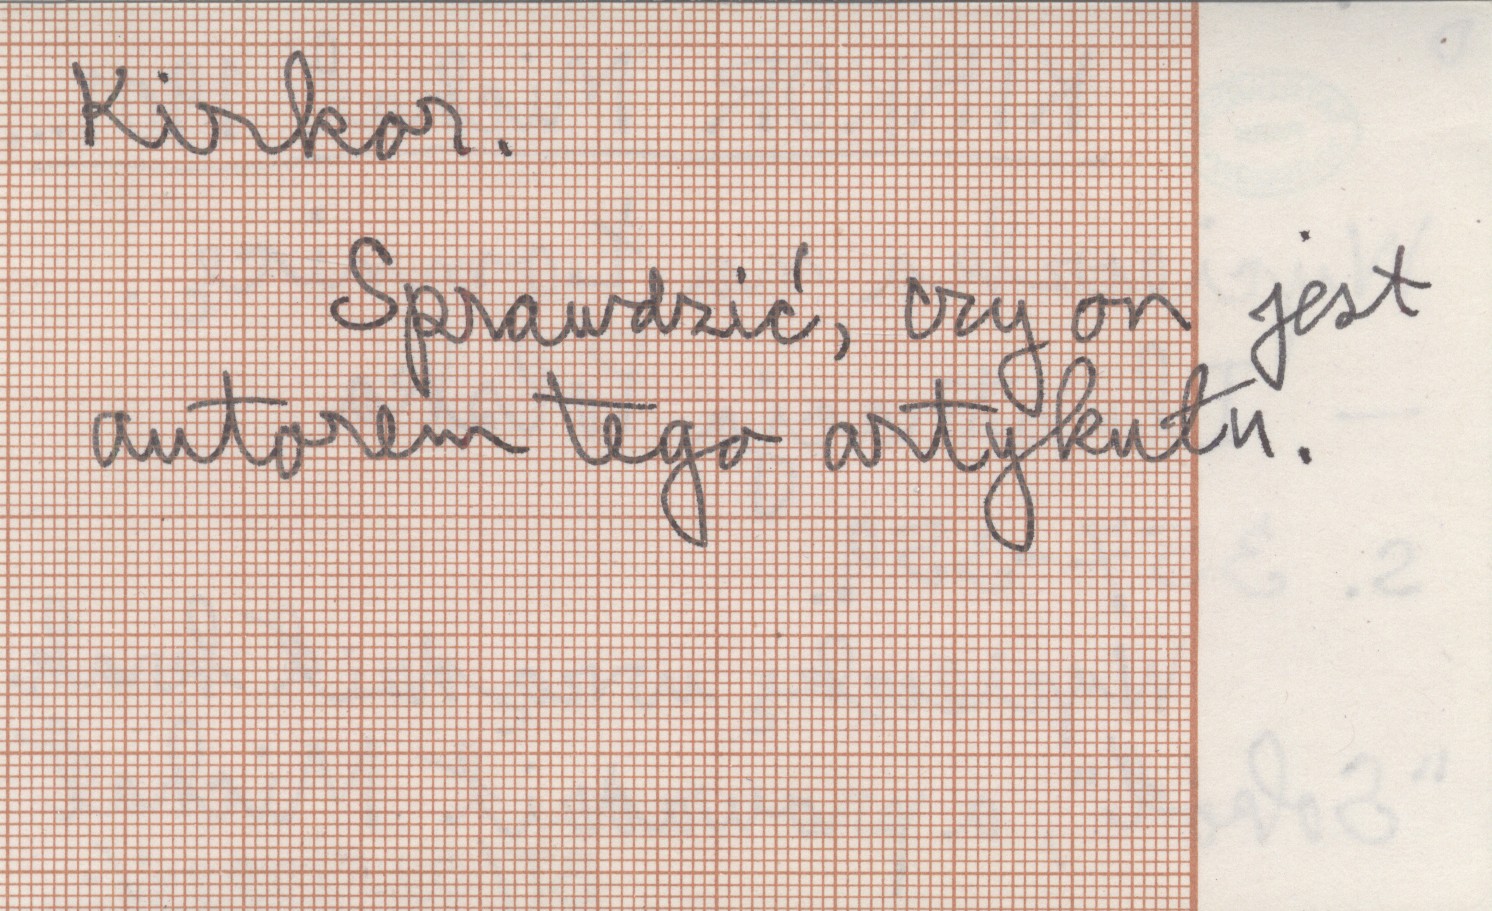 Kirkor.
Sprawdzić, czy on jest
autorem tego artykułu.